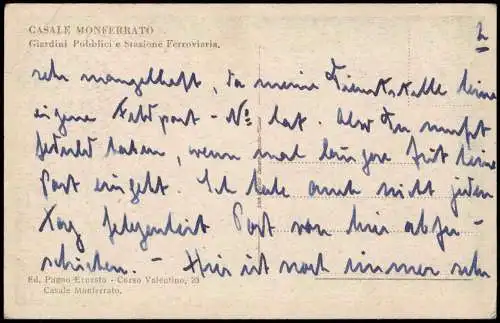 CASALE MONFERRATO
Giardini Pubblici e Stazione Ferroviaria.
2
sehr mangelhaft, da meine Dienststelle keine
eigene Feldpost-No hat. Also Du musst
Geduld haben, wenn mal längere Zeit keine
Post eingeht. Ich habe auch nicht jeden
Tag Gelegenheit Post von hier abzu-
schicken. - Hier ist noch immer sehr
Ed. Pagno Ernesto - Corso Valentino, 20
Casale Monferrato.